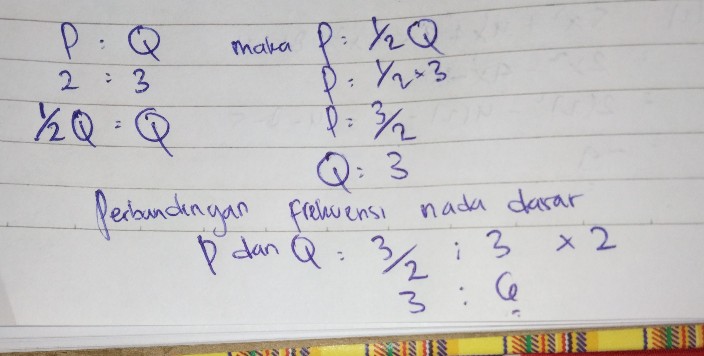 P : Q maka P = 1/2 Q
2 : 3 P = 1/2 × 3
1/2 Q = Q P = 3/2
Q = 3
Perbandingan frekuensi nada dasar
P dan Q = 3/2 : 3 × 2
3 : 6